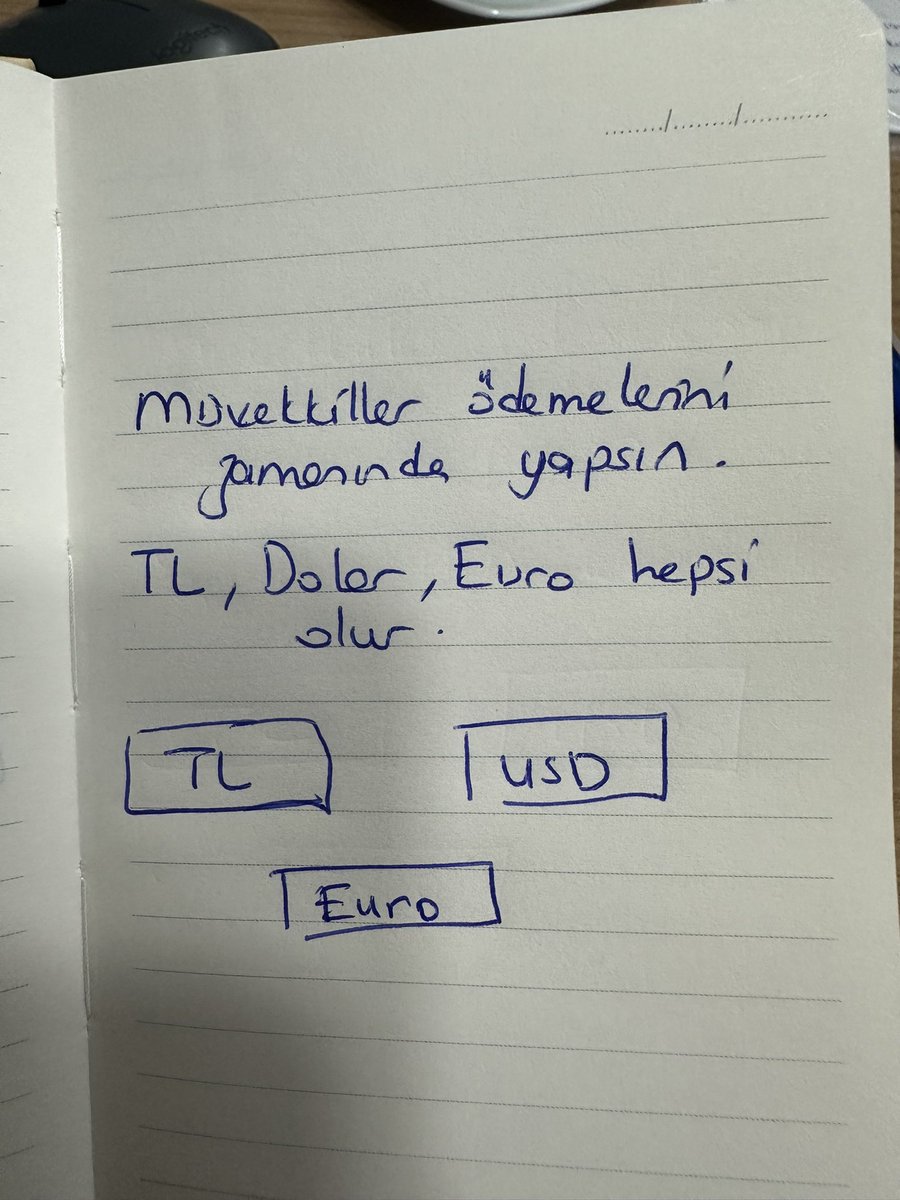 Logitech
Müvekkiller ödemelerini
zamanında yapsın.
TL, Dolar, Euro hepsi
olur.
TL
USD
Euro